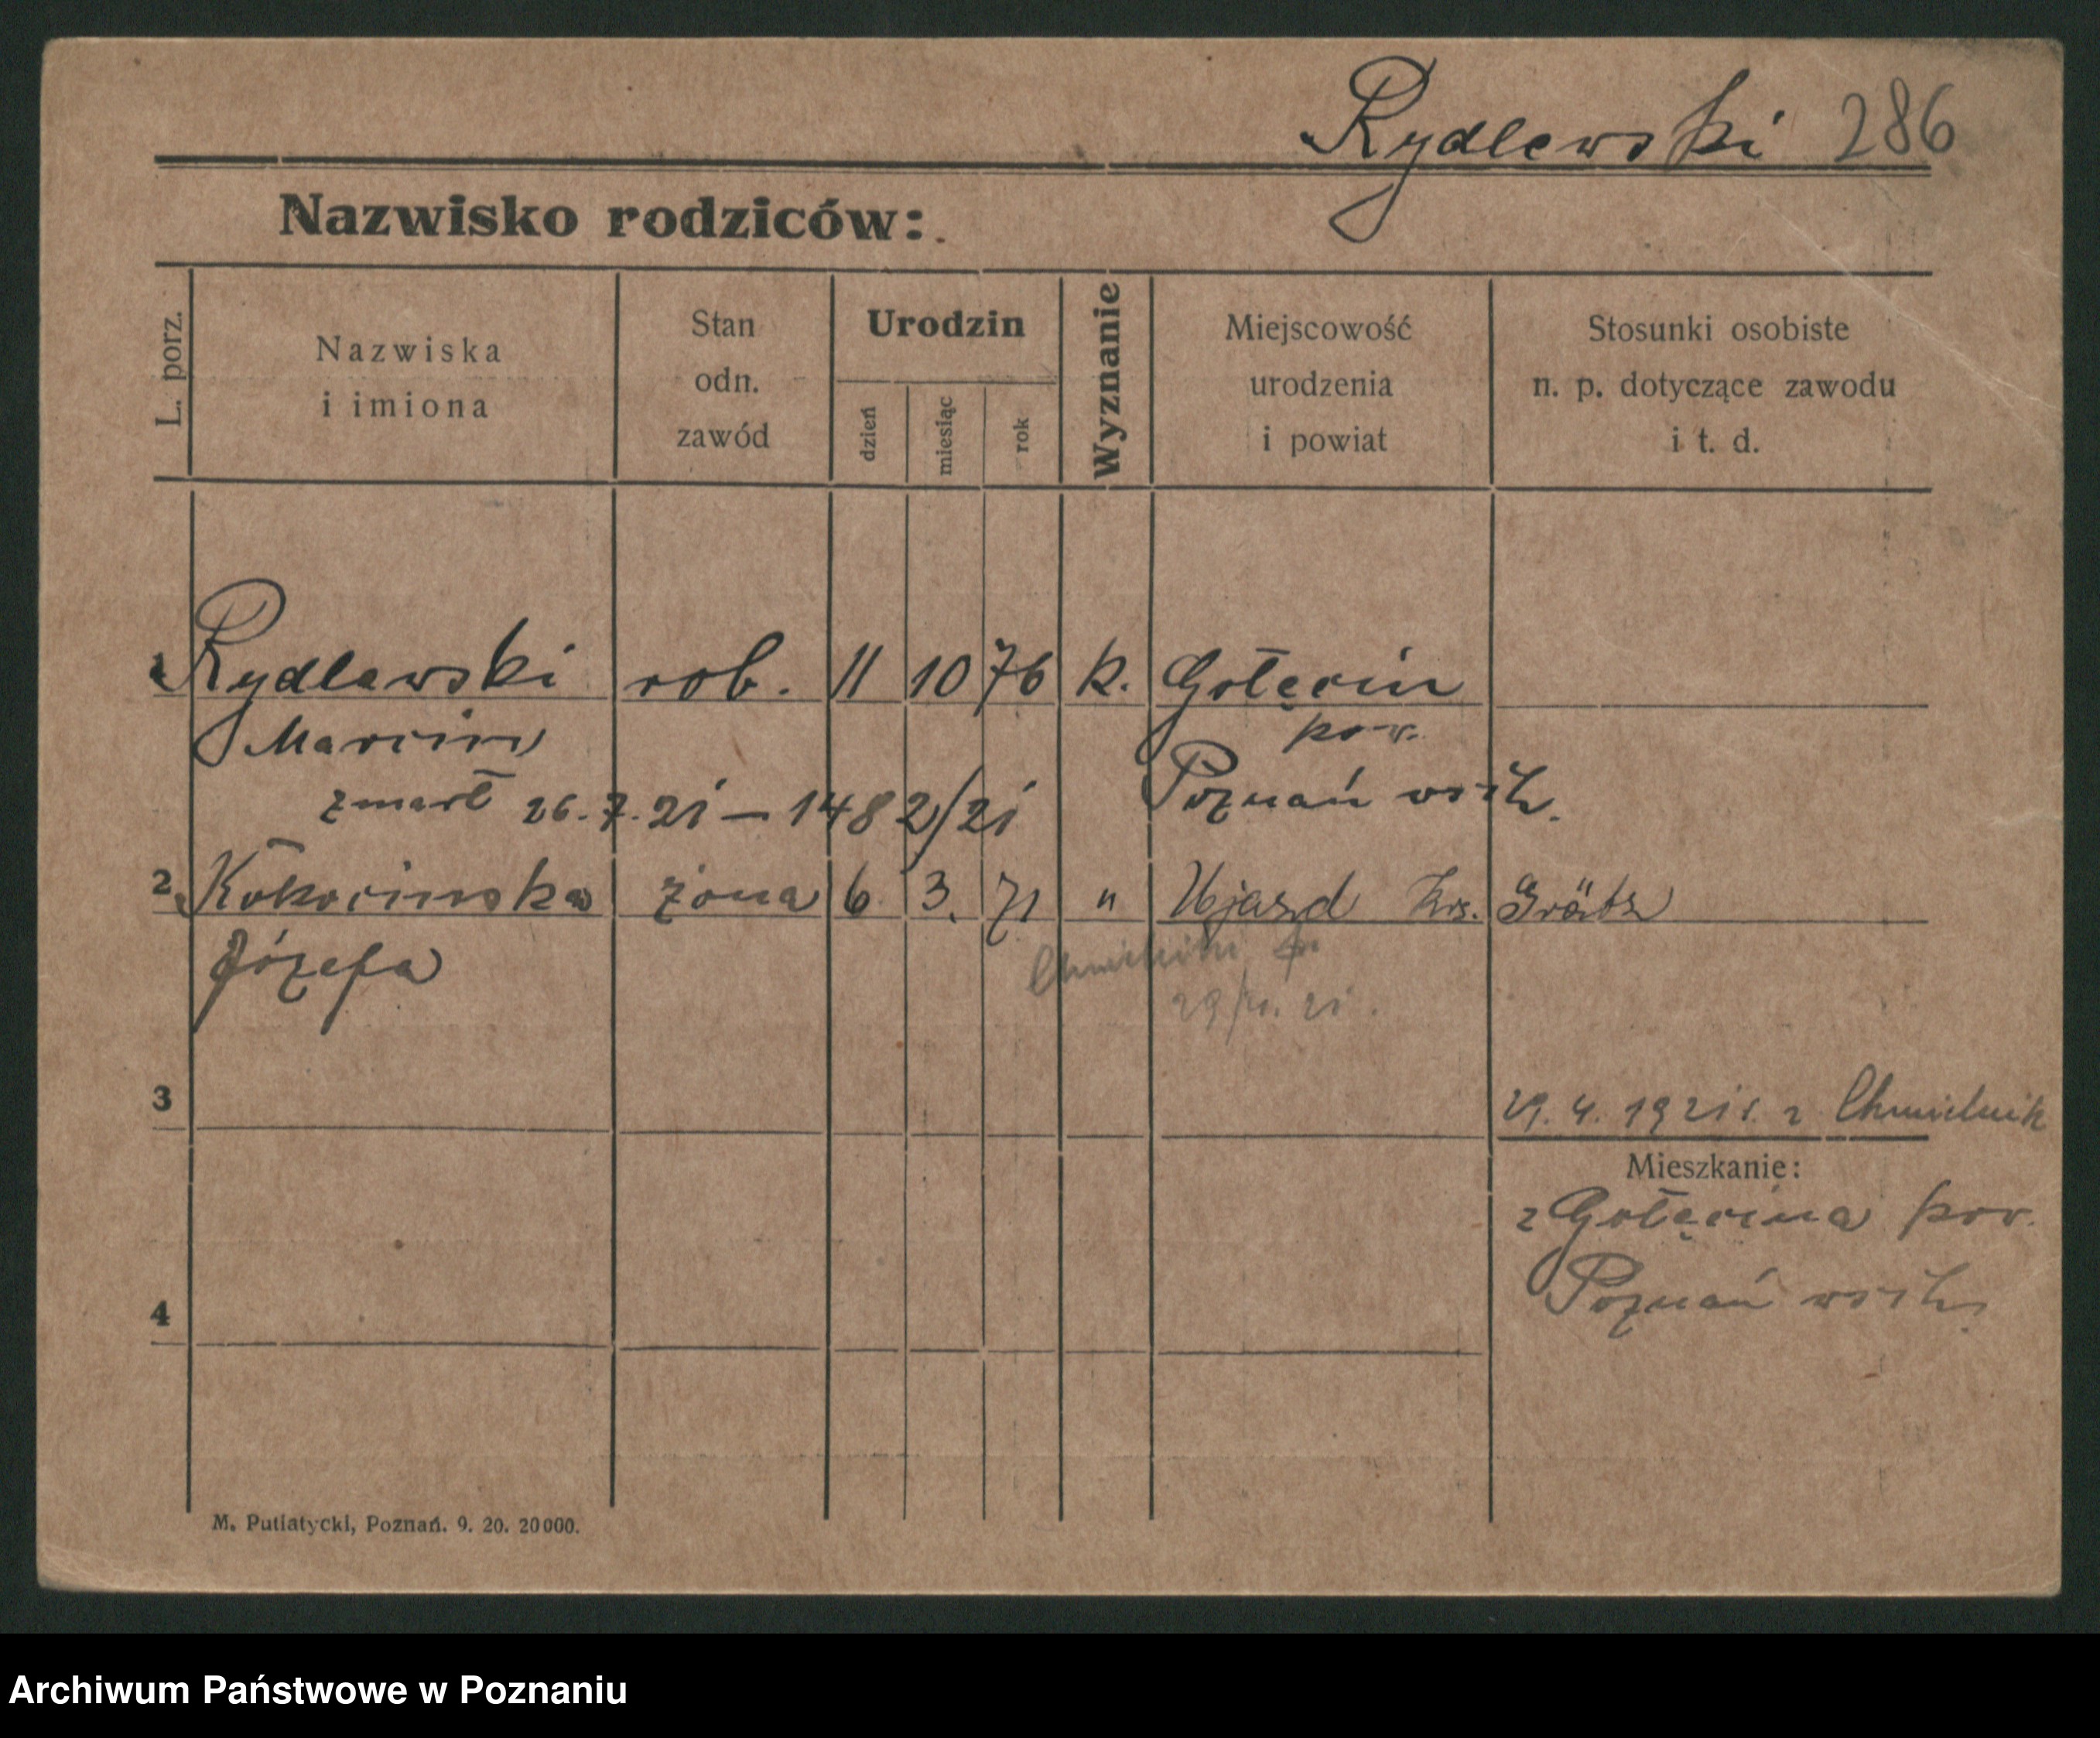 Rydlewski 286
Nazwisko rodziców:
L. porz.
Nazwiska
i imiona
Stan
odn.
zawód
Urodzin
dzień
miesiąc
rok
Wyznanie
Miejscowość
urodzenia
i powiat
Stosunki osobiste
n. p. dotyczące zawodu
i t. d.
1 Rydlewski rob. 11 10 76 k. Gołęcin
Marcin pow.
zmarł 26.7.21 — 1482/21 Poznań wsch.
2 Kokocinska żona 6 3. 71 " Ujazd Krs. Grätz
Józefa
3
29. 4. 1921 r. z Chmielnik
Mieszkanie:
z Gołęcina pow.
Poznań wsch.
4
M. Putiatycki, Poznań. 9. 20. 20000.
Archiwum Państwowe w Poznaniu